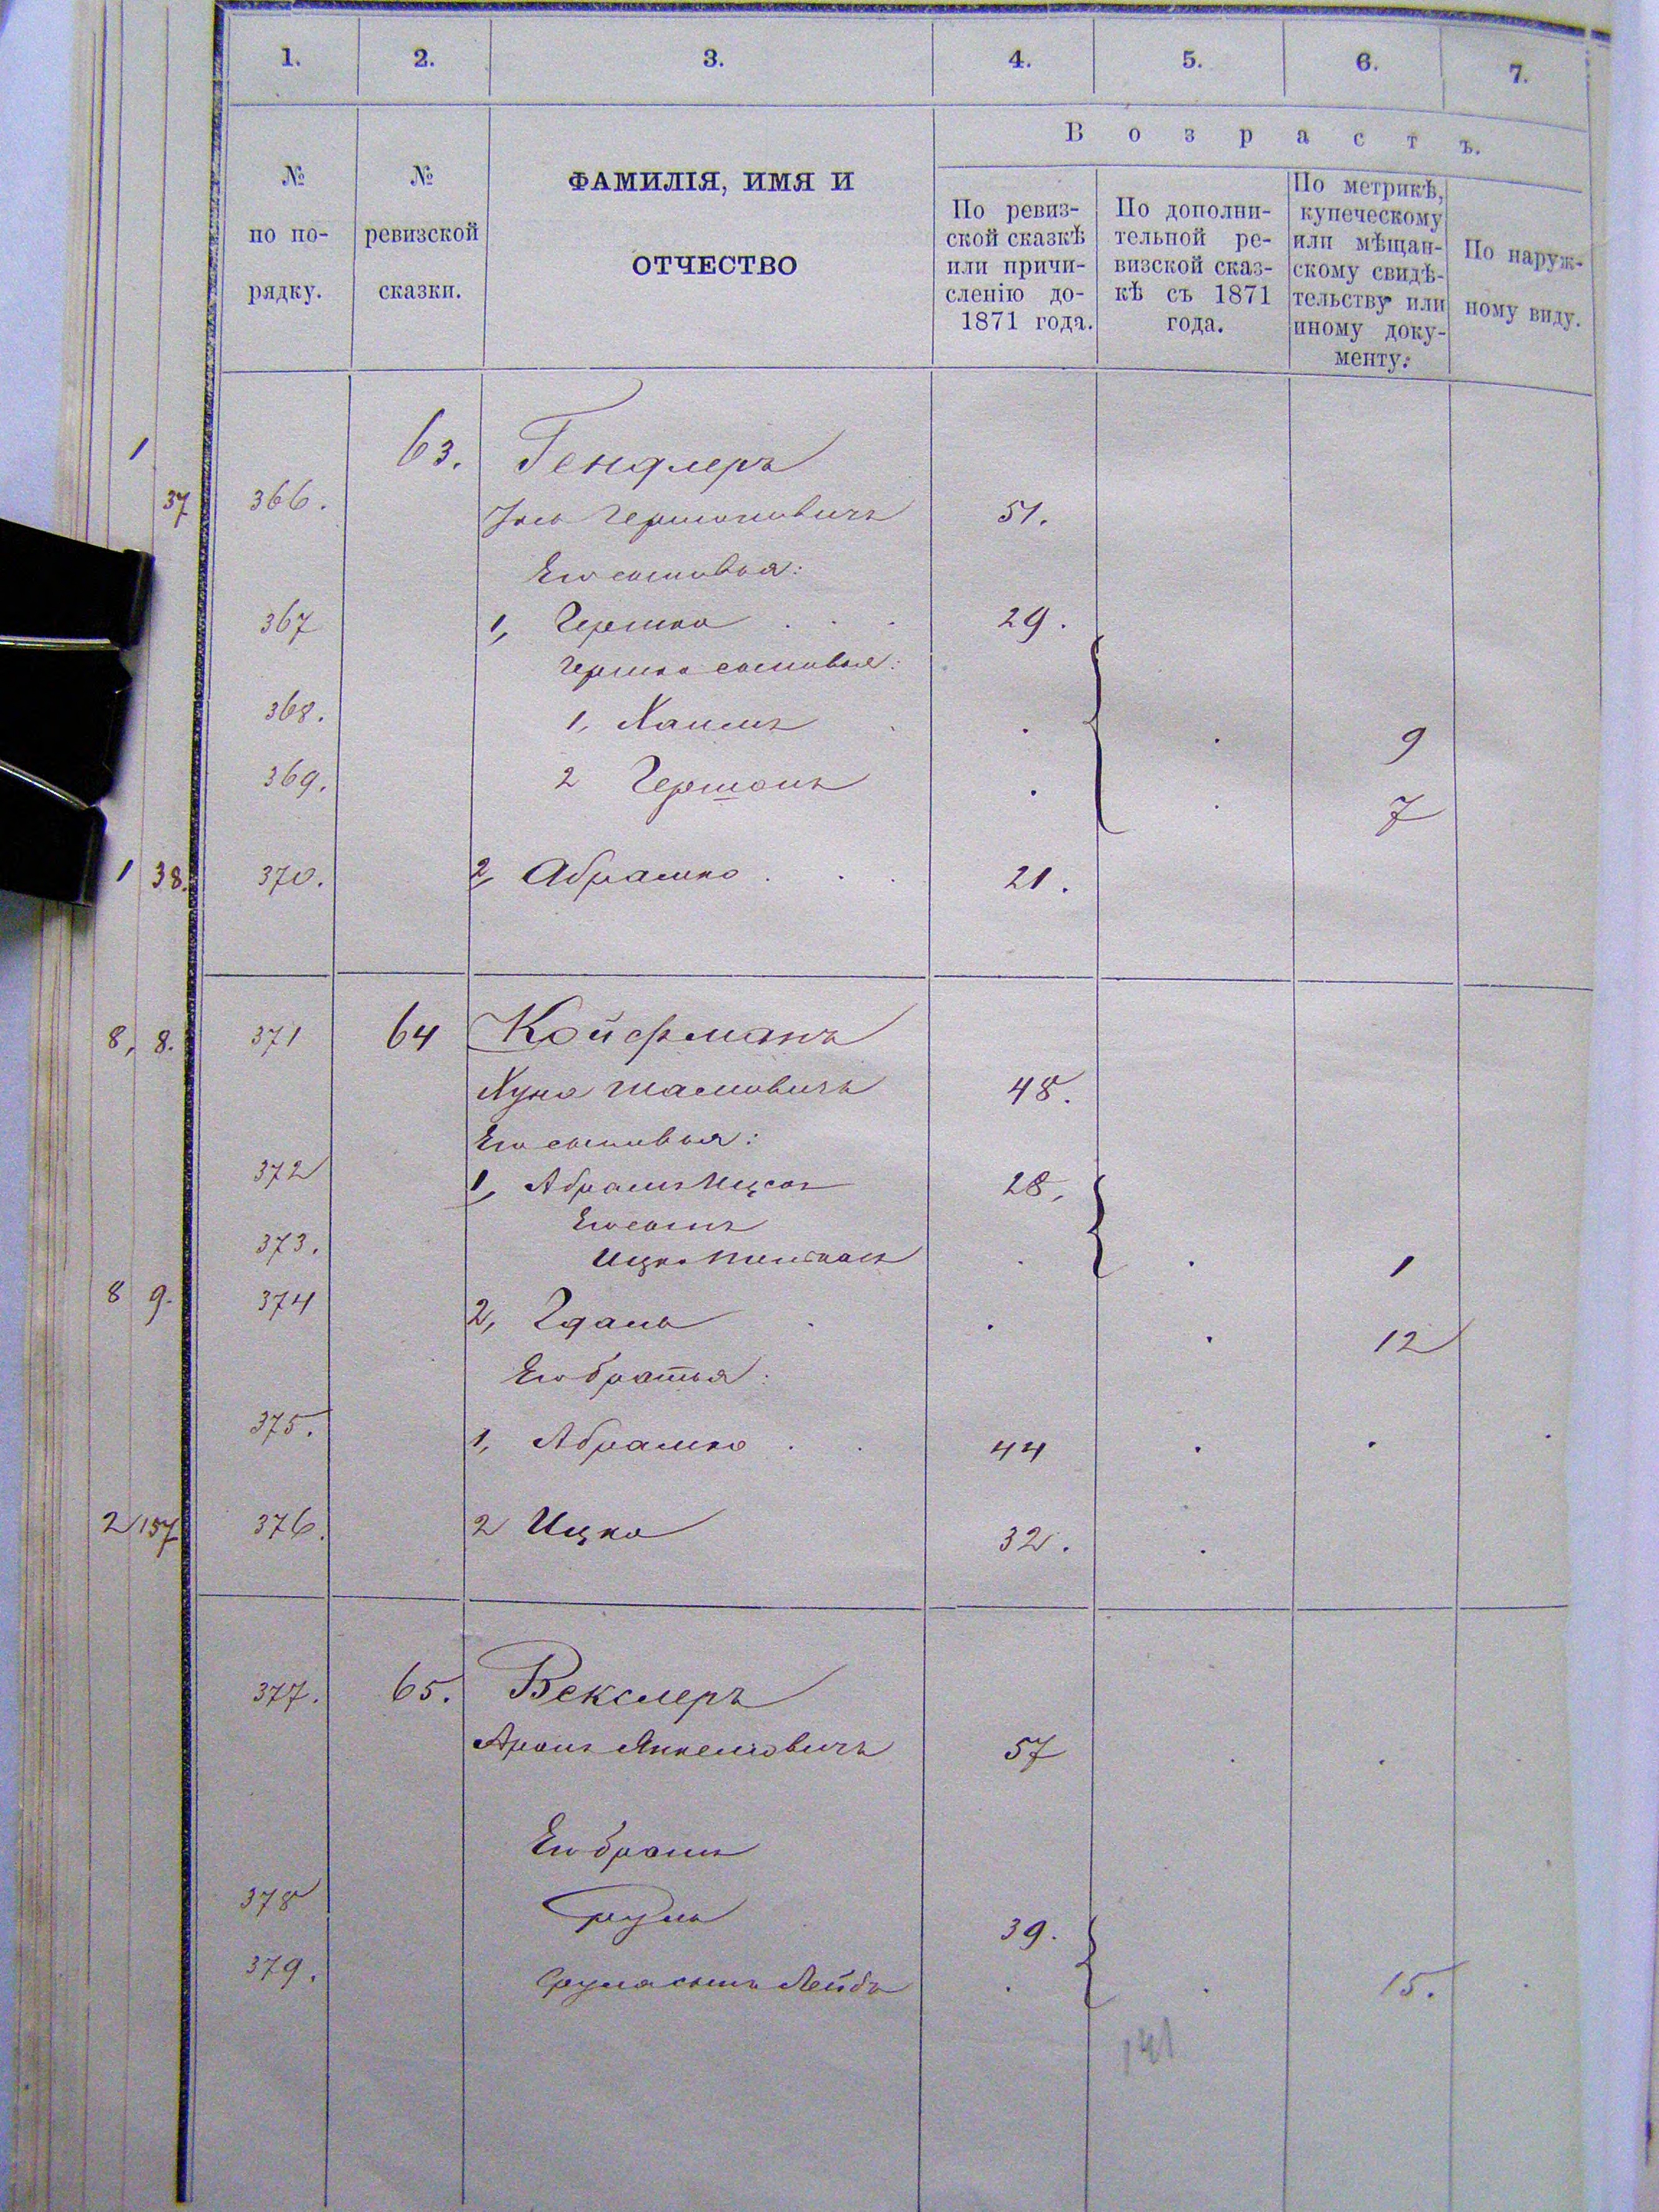 1. 2. 3. 4. 5. 6. 7.
№ по порядку.
№ ревизской сказки.
ФАМИЛІЯ, ИМЯ И
ОТЧЕСТВО
В о з р а с т ъ.
По ревиз-
ской сказкѣ
или причи-
сленію до-
1871 года.
По дополни-
тельной ре-
визской сказ-
кѣ съ 1871
года.
По метрикѣ,
купеческому
или мѣщан-
скому свидѣ-
тельству или
иному доку-
менту.
По наруж-
ному виду.
1 63. Гендлеръ
37 366. Гершоновичъ 51.
Его сыновья:
367 1, Гершко . . . 29.
Гершко сыновья:
368. 1, Хаимъ . . . 9
369. 2 Гершонъ . . 7
1 38. 370. 2, Абрашко . . . 21.
8, 8. 371 64 Койфманъ
Хуна Шамовичъ 48.
Его сыновья:
372 1, Абрамъ Ицко 28.
Его сынъ
373. Ицко . . 1
8 9. 374 2, Гдаль . . . 12
Его братья:
375. 1, Абрашко . . 44 . . .
2 157 376. 2 Ицко 32. .
377. 65. Векслеръ
Аронъ Янкелевичъ 57 . .
Его братъ
378 Сруль 39.
379. Сруля сынъ Лейбъ . . 15. .
141